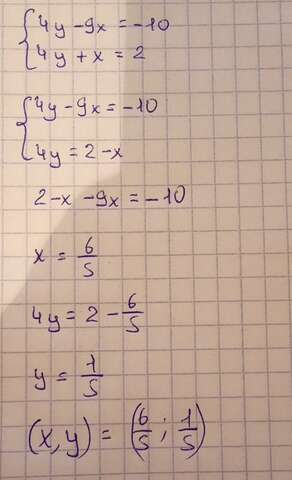 { 4y - 9x = -10
{ 4y + x = 2
{ 4y - 9x = -10
{ 4y = 2 - x
2 - x - 9x = -10
x = 6/5
4y = 2 - 6/5
y = 1/5
(x, y) = (6/5 ; 1/5)